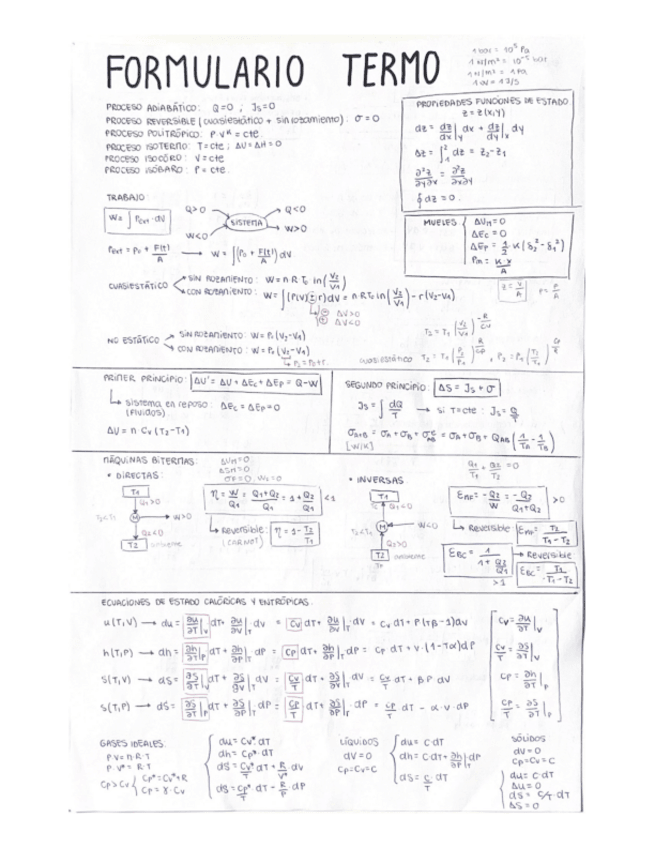 FORMULARIO TERMO
1 bar = 10⁵ Pa
1 N/m² = 10⁻⁵ bar
1 N/m² = 1 Pa
PROCESO ADIABÁTICO: Q=0 ; Js=0
PROCESO REVERSIBLE (cuasiestático + sin rozamiento): σ=0
PROCESO POLITRÓPICO: P·Vᴷ = cte.
PROCESO ISOTERMO: T=cte ; ΔU=ΔH=0
PROCESO ISOCÓRO: V=cte
PROCESO ISÓBARO: P=cte.
PROPIEDADES FUNCIONES DE ESTADO
z=z(x,y)
dz = dz/dx|y dx + dz/dy|x dy
Δz = ∫₁² dz = z₂-z₁
∂²z/∂y∂x = ∂²z/∂x∂y
∮dz = 0
TRABAJO:
W = ∫Pext·dV
Q>0
Q<0
SISTEMA
W<0
W>0
Pext = P₀ + F(t)/A → W = ∫(P₀ + F(t)/A) dV
MUELLES
ΔUM=0
ΔEc=0
ΔEp = 1/2 K(δ₂²-δ₁²)
Pm = K·x/A
z = V/A
P = F/A
CUASIESTÁTICO
SIN ROZAMIENTO: W=n·R·T₀ ln(V₂/V₁)
CON ROZAMIENTO: W=∫(P(v)±r)dV = n·RT₀ ln(V₂/V₁) - r(V₂-V₁)
⊕ ΔV>0
⊖ ΔV<0
NO ESTÁTICO
SIN ROZAMIENTO: W=P₀(V₂-V₁)
CON ROZAMIENTO: W=P₀(V₂-V₁)
T₂ = T₁(V₂/V₁)^-R/Cv
cuasiestático T₂ = T₁(P₂/P₁)^R/Cp , P₂ = P₁(T₂/T₁)^Cp/R
PRIMER PRINCIPIO: ΔU' = ΔU + ΔEc + ΔEp = Q-W
sistema en reposo: ΔEc = ΔEp = 0
(fluidos)
ΔU = n·Cv(T₂-T₁)
SEGUNDO PRINCIPIO: ΔS = Js + σ
Js = ∫dQ/T → si T=cte : Js = Q/T
σA+B = σA + σB + σAB = σA + σB + QAB(1/TA - 1/TB)
[W/K]
MÁQUINAS BITERMAS:
ΔUM=0
ΔSM=0
• DIRECTAS:
T1
Q₁>0
T₂<T₁
M
W>0
Q₂<0
T2 ambiente
η = W/Q₁ = Q₁+Q₂/Q₁ = 1 + Q₂/Q₁ <1
Reversible: η = 1 - T₂/T₁
(CARNOT)
• INVERSAS:
T1
Q₁<0
T₂<T₁
M
W<0
Q₂>0
T2 ambiente
Q₁/T₁ + Q₂/T₂ = 0
EMF = -Q₂/W = -Q₂/Q₁+Q₂ >0
Reversible EMF = T₂/T₁-T₂
EBC = 1/1+Q₂/Q₁
>1
Reversible
EBC = T₁/T₁-T₂
ECUACIONES DE ESTADO CALÓRICAS Y ENTRÓPICAS.
u(T,V) → du = ∂u/∂T|v dT + ∂u/∂v|T dv = Cv dT + ∂u/∂v|T dv = Cv dT + P(Tβ-1)dv
h(T,P) → dh = ∂h/∂T|p dT + ∂h/∂P|T dP = Cp dT + ∂h/∂P|T dP = Cp dT + v·(1-Tα)dP
S(T,V) → dS = ∂S/∂T|v dT + ∂S/∂v|T dv = Cv/T dT + ∂S/∂v|T dv = Cv/T dT + β·P dv
S(T,P) → dS = ∂S/∂T|p dT + ∂S/∂P|T dP = Cp/T dT + ∂S/∂P|T·dP = Cp/T dT - α·v·dP
Cv = ∂u/∂T|v
Cv/T = ∂S/∂T|v
Cp = ∂h/∂T|p
Cp/T = ∂S/∂T|p
GASES IDEALES:
P·V=n·R·T
P·v*=R·T
Cp>Cv
Cp*=Cv*+R
Cp=γ·Cv
du=Cv*·dT
dh=Cp*·dT
dS=Cv*/T dT + R/v* dv
dS=Cp*/T·dT - R/P dP
LÍQUIDOS
dV=0
Cp=Cv=C
du=C·dT
dh=C·dT+∂h/∂P|T dP
dS=C/T·dT
SÓLIDOS
dV=0
Cp=Cv=C
du=C·dT
ΔU=0
dS=C/T·dT
ΔS=0